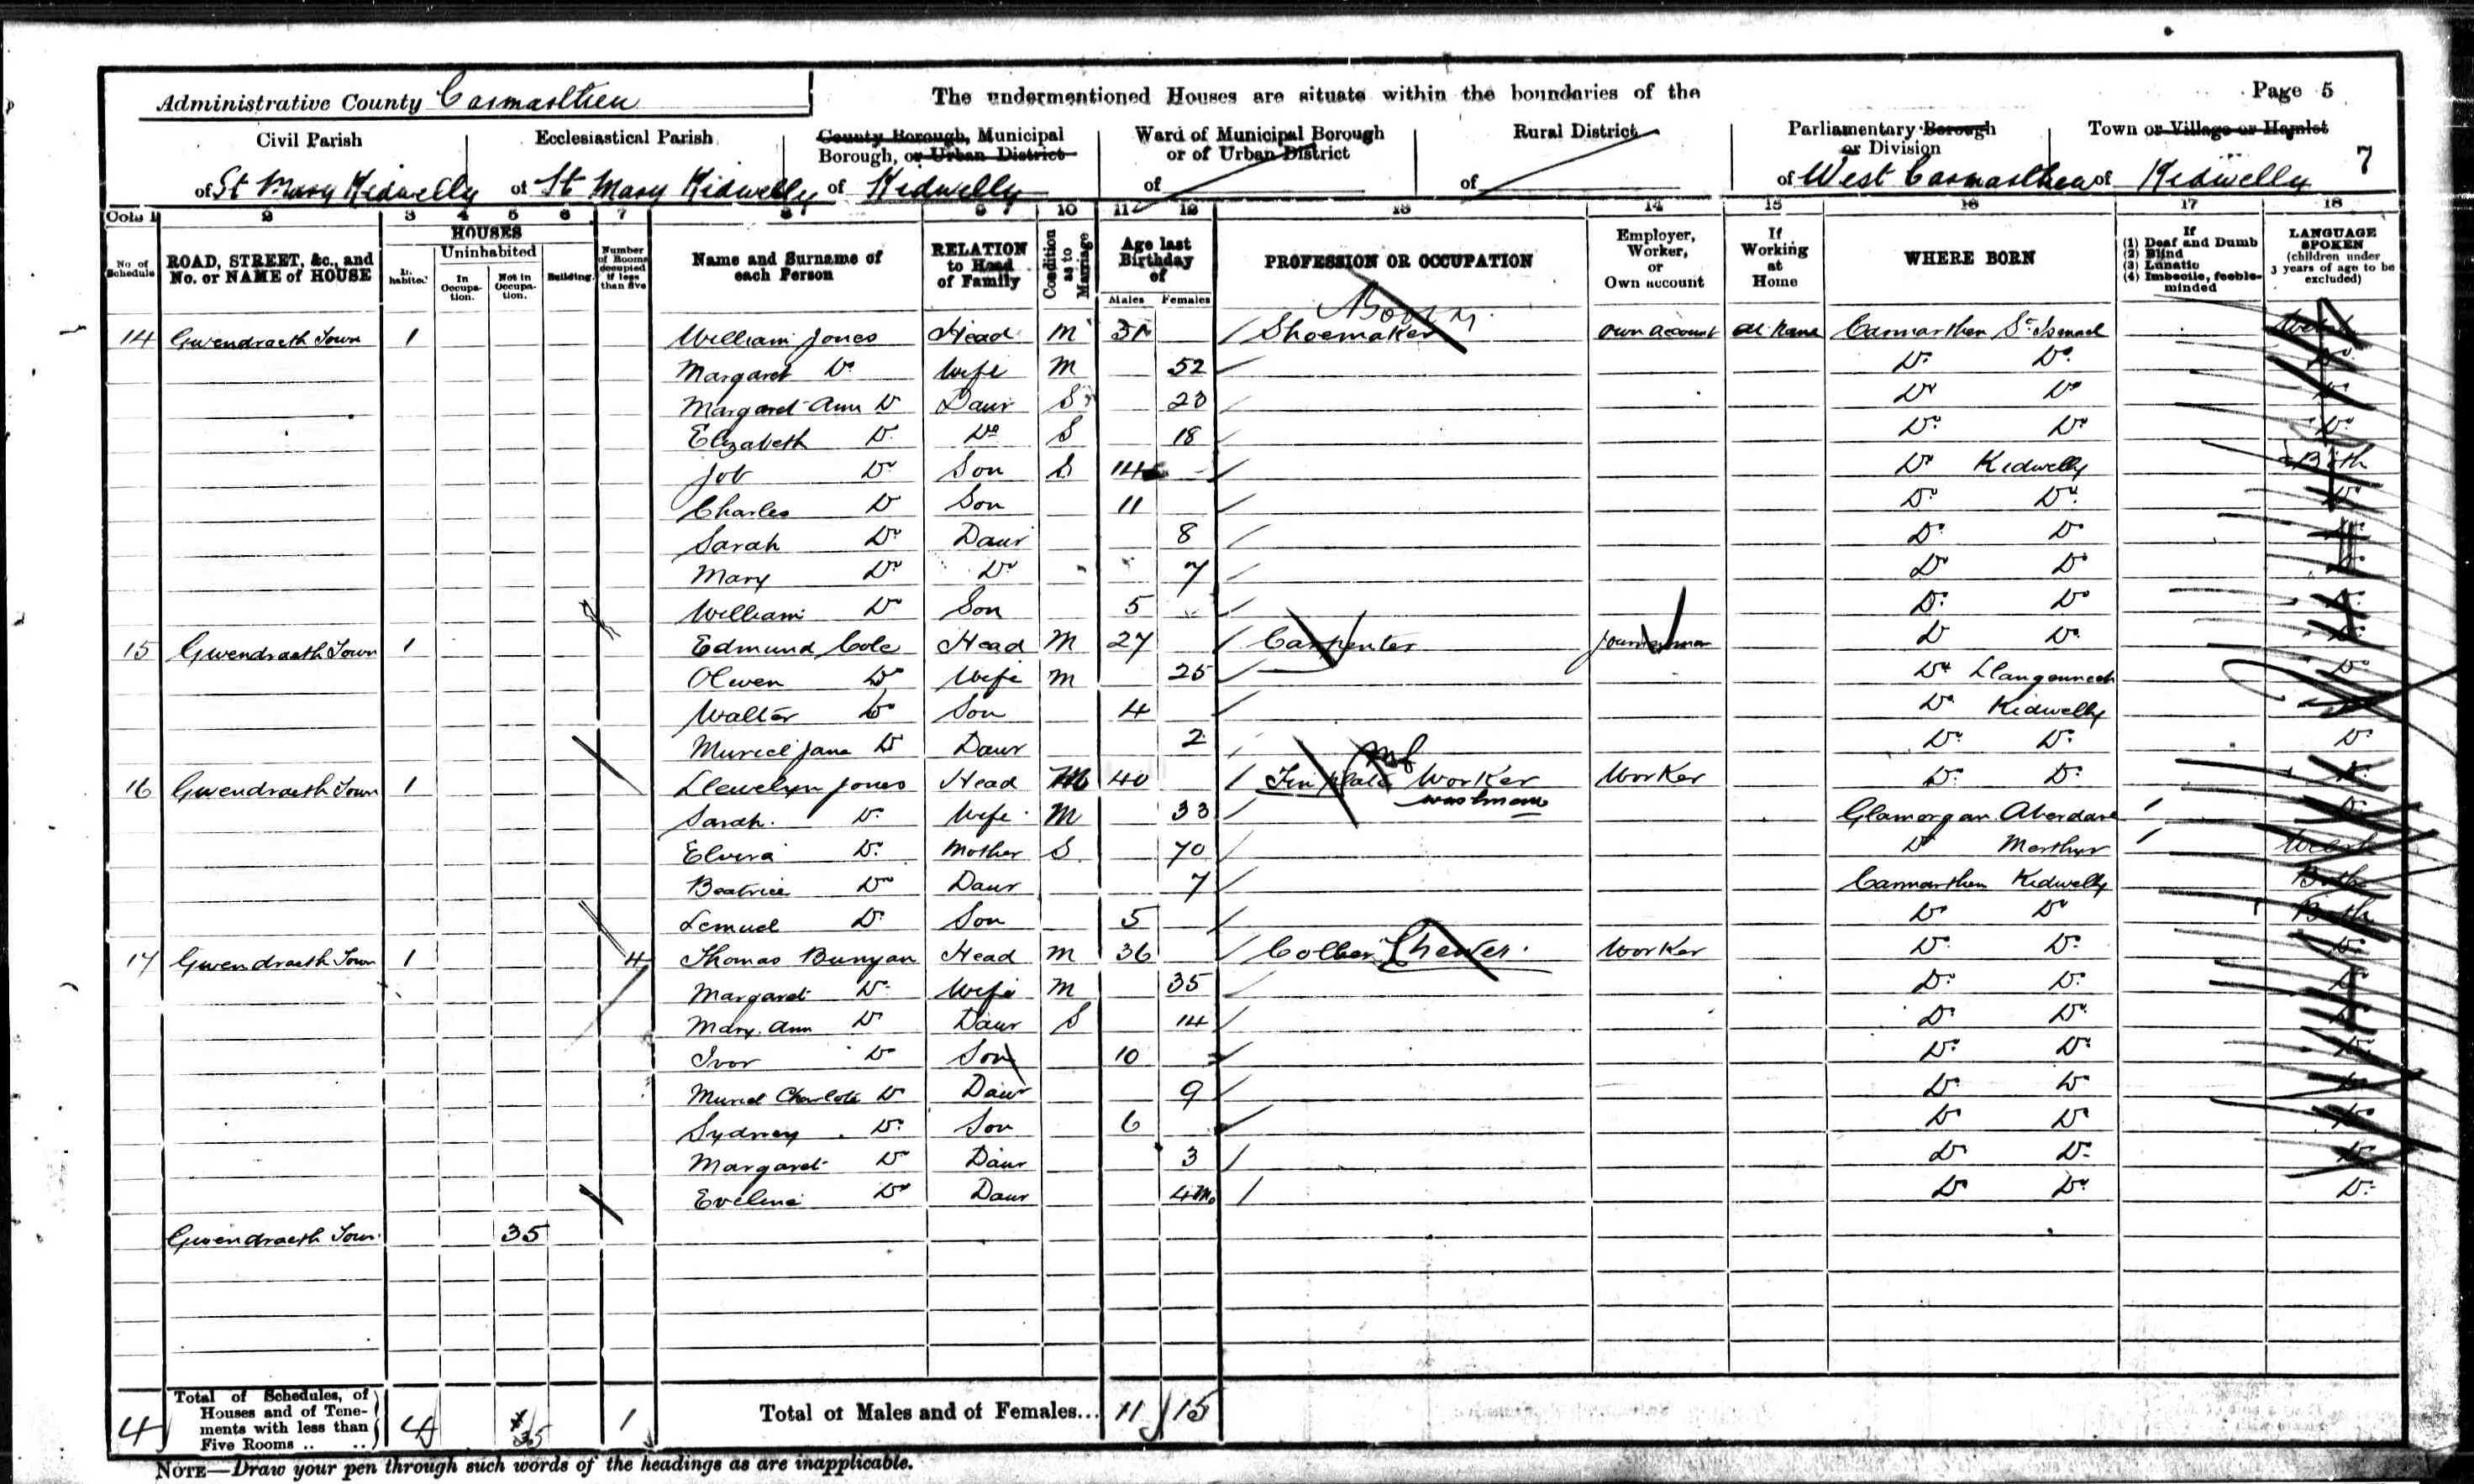 Administrative County Carmarthen
The undermentioned Houses are situate within the boundaries of the
Page 5
Civil Parish
Ecclesiastical Parish
County Borough, Municipal Borough, or Urban District
Ward of Municipal Borough or of Urban District
Rural District
Parliamentary Borough or Division
Town or Village or Hamlet
7
of St Mary Kidwelly of St Mary Kidwelly of Kidwelly of of of West Carmarthen of Kidwelly
Cols 1 2 3 4 5 6 7 8 9 10 11 12 13 14 15 16 17 18
No. of Schedule
ROAD, STREET, &c., and No. or NAME of HOUSE
HOUSES
Inhabited
Uninhabited
In Occupation.
Not in Occupation.
Building.
Number of Rooms occupied if less than five
Name and Surname of each Person
RELATION to Head of Family
Condition as to Marriage
Age last Birthday of
Males Females
PROFESSION OR OCCUPATION
Employer, Worker, or Own account
If Working at Home
WHERE BORN
If
(1) Deaf and Dumb
(2) Blind
(3) Lunatic
(4) Imbecile, feeble-minded
LANGUAGE SPOKEN
(children under 3 years of age to be excluded)
14 Gwendraeth Town 1 William Jones Head M 51 Shoemaker own account At Home Carmarthen St Ismael
Margaret Do Wife M 52 Do Do Do
Margaret Ann Do Daur S 23 Do Do Do
Elizabeth Do Do S 18 Do Do Do
Job Do Son S 14 Do Kidwelly Both
Charles Do Son 11 Do Do Do
Sarah Do Daur 8 Do Do
Mary Do Do 7 Do Do Do
William Do Son 5 Do Do Do
15 Gwendraeth Town 1 Edmund Cole Head M 27 Carpenter Journeyman Do Do Do
Olwen Do Wife M 25 Do Llangennech Do
Walter Do Son 4 Do Kidwelly
Muriel Jane Do Daur 2 Do Do Do
16 Gwendraeth Town 1 Llewelyn Jones Head M 40 Tin plate Worker Worker Do Do Do
Sarah Do Wife M 33 Glamorgan Aberdare Do
Elvira Do Mother S 70 Do Merthyr Welsh
Beatrice Do Daur 7 Carmarthen Kidwelly Both
Lemuel Do Son 5 Do Do Both
17 Gwendraeth Town 1 4 Thomas Bunyan Head M 36 Collier Hewer Worker Do Do Do
Margaret Do Wife M 35 Do Do Do
Mary Ann Do Daur S 14 Do Do Do
Ivor Do Son 10 Do Do Do
Muriel Charlote Do Daur 9 Do Do Do
Sydney Do Son 6 Do Do Do
Margaret Do Daur 3 Do Do Do
Eveline Do Daur 4 Mo Do Do Do
Gwendraeth Town 35
4 Total of Schedules, of Houses and of Tenements with less than Five Rooms .. .. 4 35 1 Total of Males and of Females... 11 15
NOTE—Draw your pen through such words of the headings as are inapplicable.